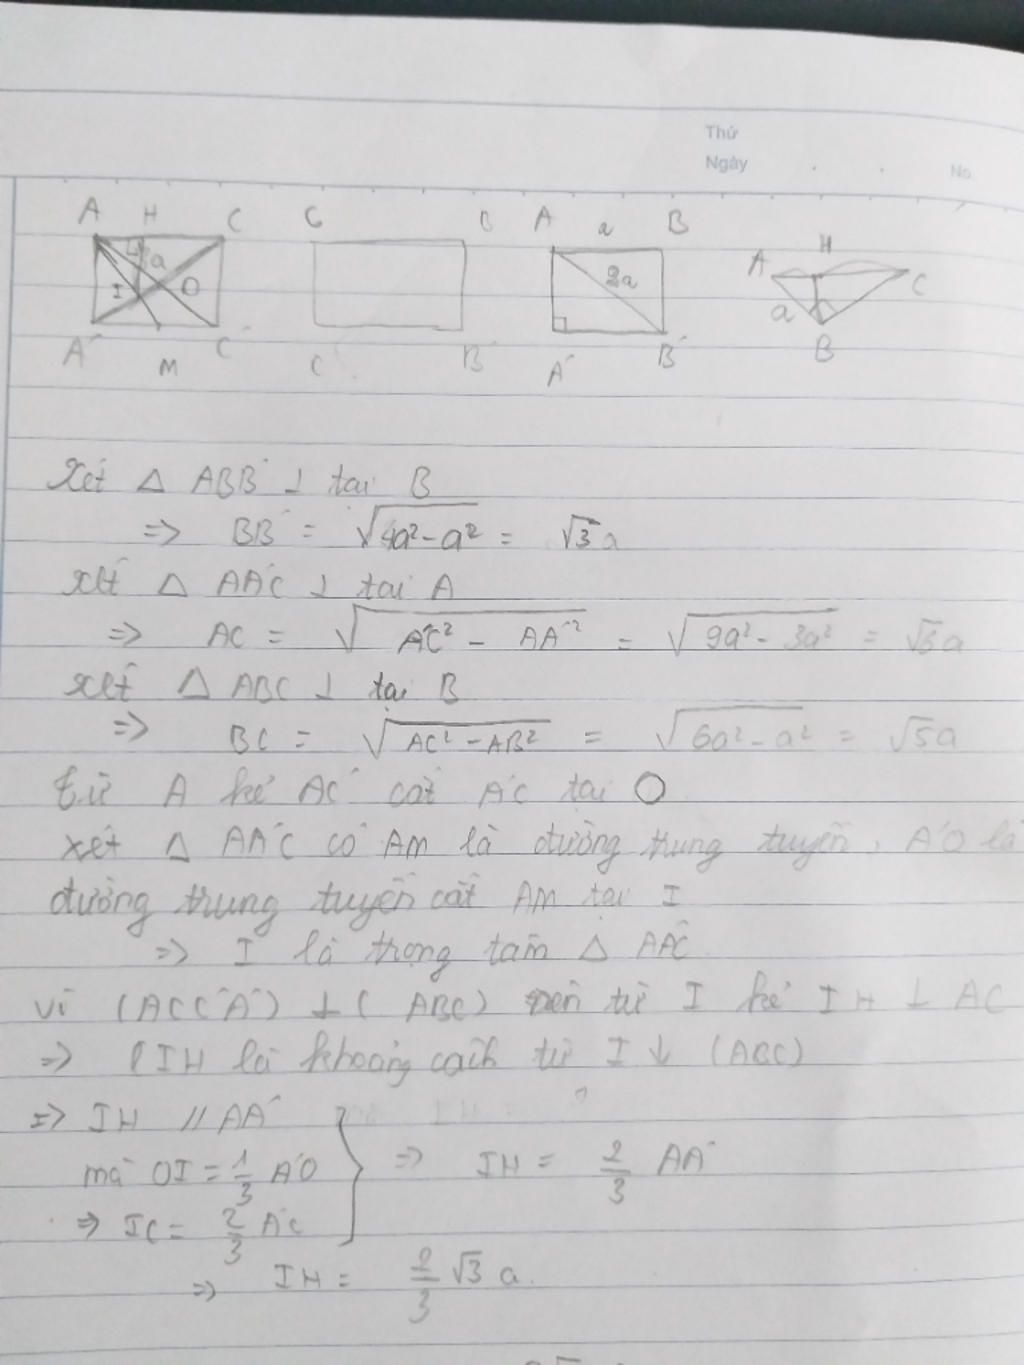 Thứ
Ngày
No.
A H C C B A a B A H C
a I O 2a a
A' M C' C' B' A' B' B
Xét △ ABB' ⊥ tại B
=> BB' = √4a² - a² = √3a
xét △ AA'C ⊥ tại A
=> AC = √A'C² - AA'² = √9a² - 3a² = √3a
xét △ ABC ⊥ tại B
=> BC = √AC² - AB² = √6a² - a² = √5a
từ A kẻ AC' cắt A'C tại O
xét △ AA'C' có AM là đường trung tuyến, A'O là
đường trung tuyến cắt AM tại I
=> I là trọng tâm △ AA'C'
vì (ACC'A') ⊥ (ABC) nên từ I kẻ IH ⊥ AC
=> IH là khoảng cách từ I ↓ (ABC)
=> IH // AA'
mà OI = 1/3 A'O => IH = 2/3 AA'
=> IC = 2/3 A'C
=> IH = 2/3 √3 a.